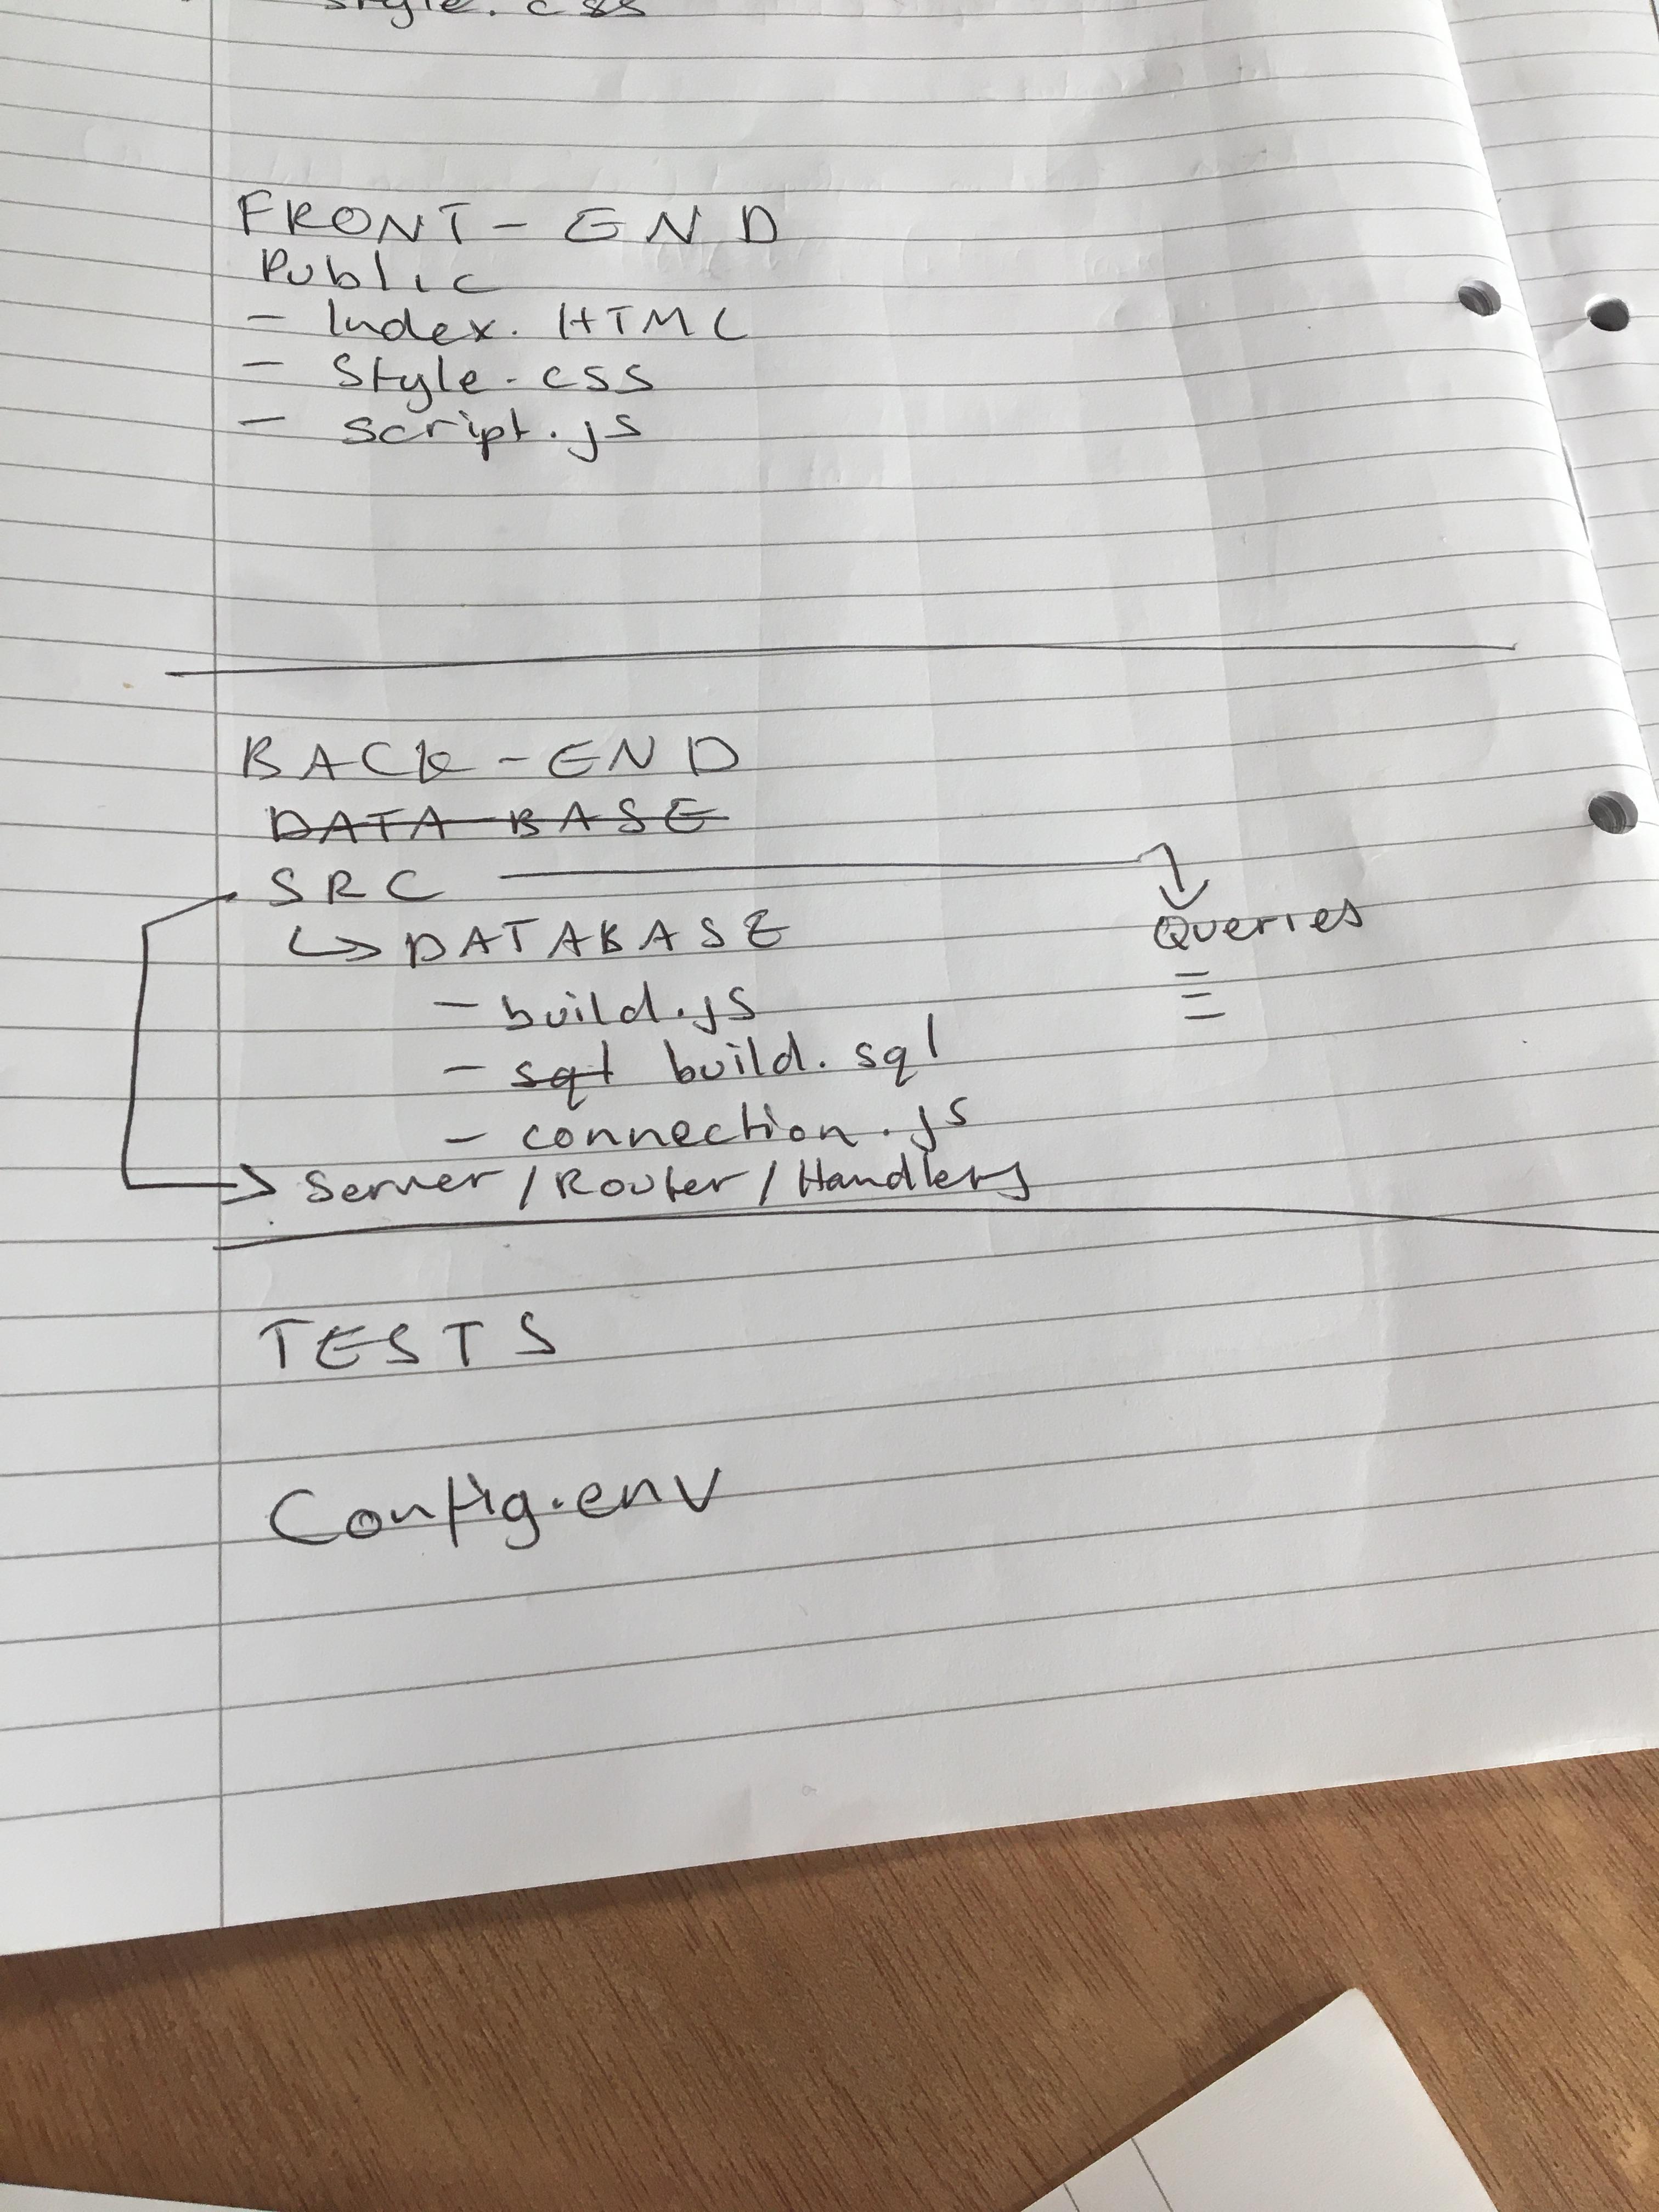 style.css
FRONT-END
Public
- Index.HTML
- Style.css
- script.js
BACK-END
DATABASE
SRC
DATABASE
Queries
- build.js
- sql build.sql
- connection.js
Server/Router/Handlers
TESTS
Config.env